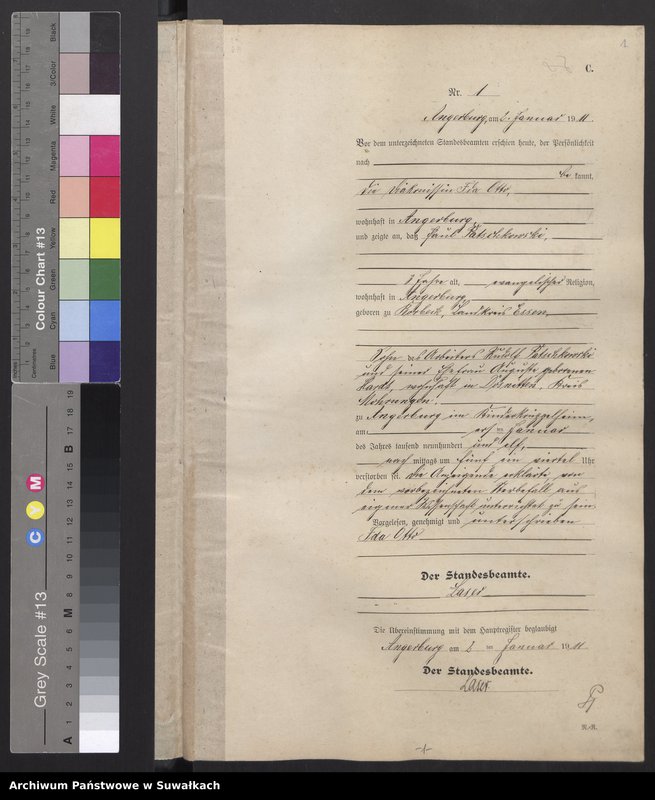 1
C.
Nr. 1
Angerburg, am 2. Januar 1911.
Vor dem unterzeichneten Standesbeamten erschien heute, der Persönlichkeit
nach
be kannt,
die Diakonissin Ida Otto,
wohnhaft in Angerburg,
und zeigte an, daß Paul
8 Jahre alt, evangelischer Religion,
wohnhaft in Angerburg,
geboren zu Borbeck, Landkreis Essen,
Sohn des Arbeiters Rudolf
und seiner Ehefrau Auguste geborenen
wohnhaft in Kreis
Mohrungen,
zu Angerburg im Kinderkrüppelheim,
am ersten Januar
des Jahres tausend neunhundert und elf,
nach mittags um fünf ein viertel Uhr
verstorben sei. Die Anzeigende erklärte, von
dem vorbezeichneten Sterbefall aus
eigener Wissenschaft unterrichtet zu sein.
Vorgelesen, genehmigt und unterschrieben
Ida Otto
Der Standesbeamte.
Laser
Die Übereinstimmung mit dem Hauptregister beglaubigt
Angerburg am 2 ten Januar 1911.
Der Standesbeamte.
Laser
N.-R.
-1-
Colour Chart #13
Blue Cyan Green Yellow Red Magenta White 3/Color Black
Centimetres
Inches
Grey Scale #13
C Y M
A 1 2 3 4 5 6 M 8 9 10 11 12 13 14 15 B 17 18 19
Archiwum Państwowe w Suwałkach